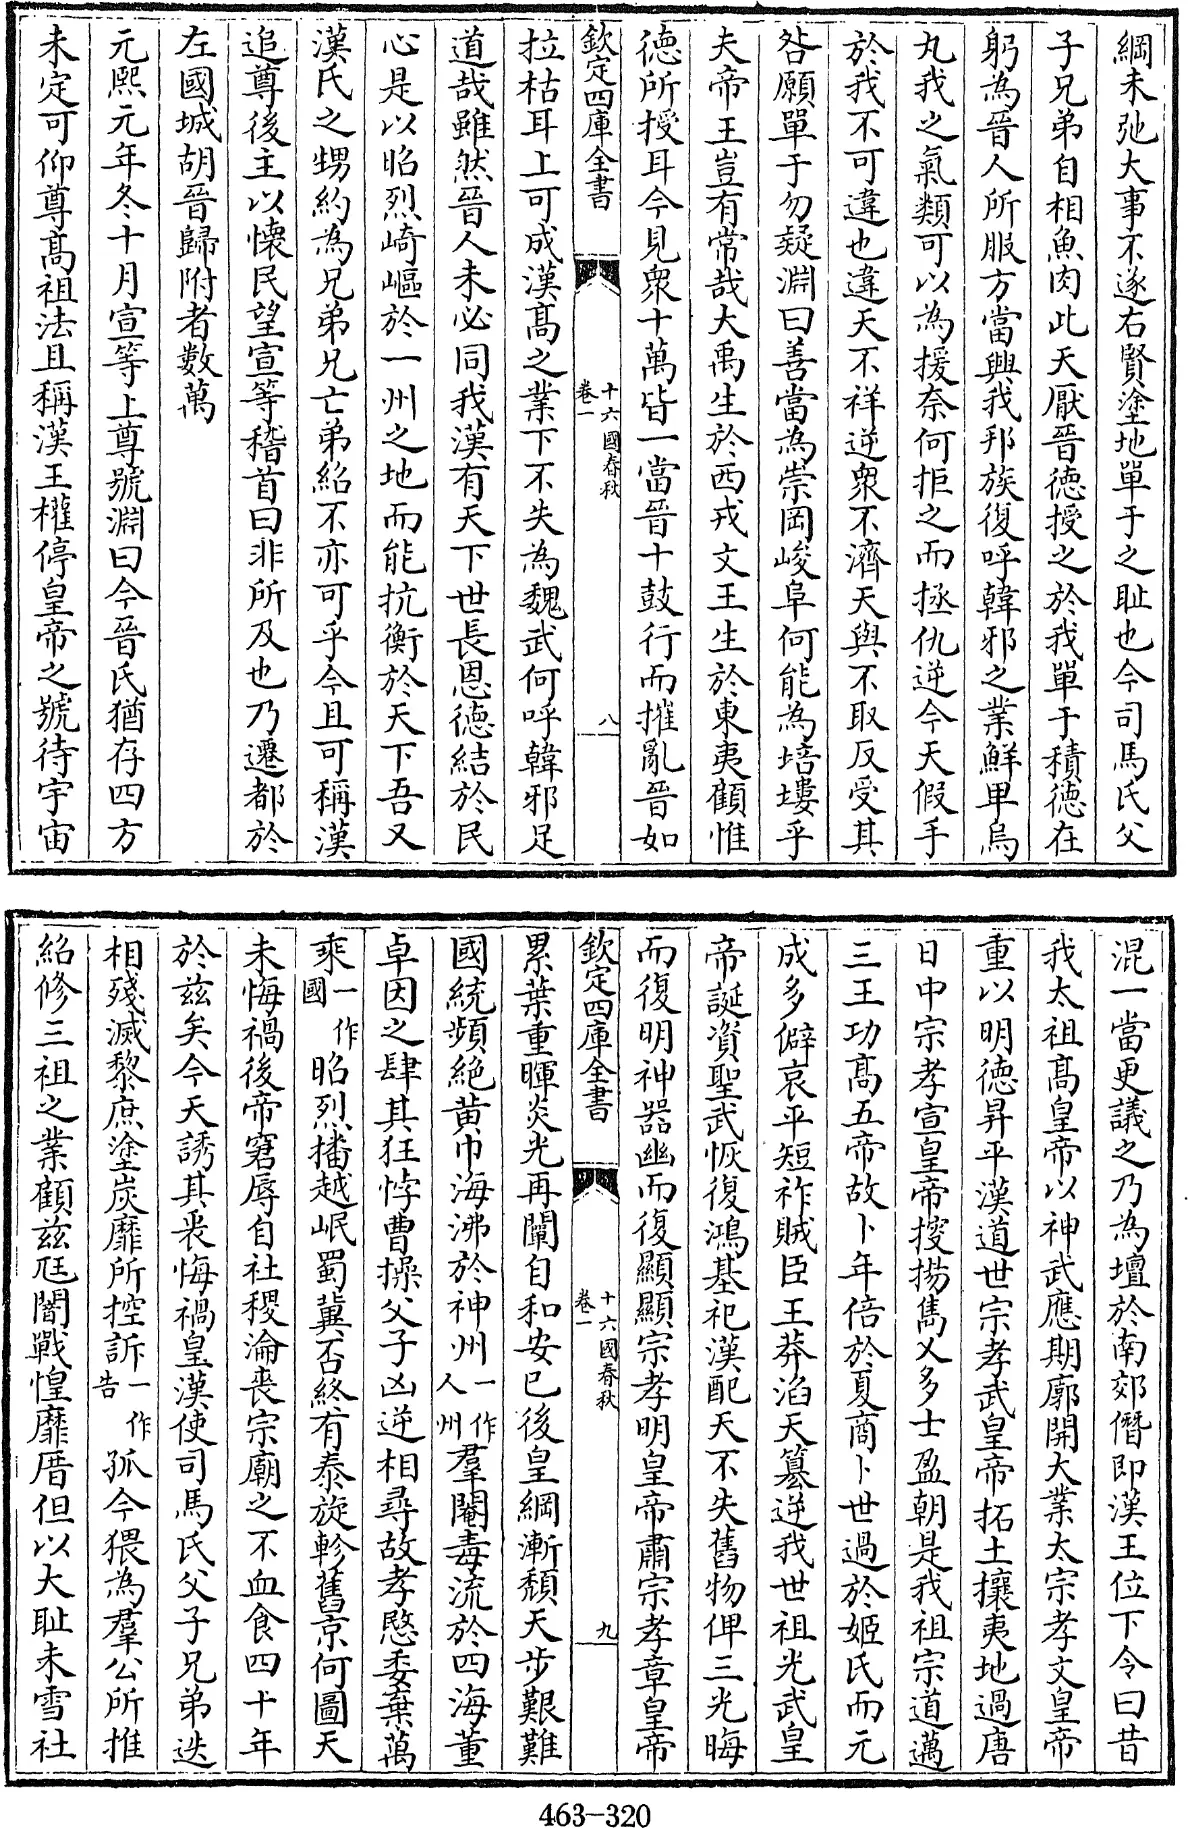 綱未弛大事不遂右賢塗地單于之耻也今司馬氏父
子兄弟自相魚肉此天厭晉德授之於我單于積德在
躬為晉人所服方當興我邦族復呼韓邪之業鮮卑烏
丸我之氣類可以為援奈何拒之而拯仇逆今天假手
於我不可違也違天不祥逆衆不濟天與不取反受其
咎願單于勿疑淵曰善當為崇岡峻阜何能為培塿乎
夫帝王豈有常哉大禹生於西戎文王生於東夷顧惟
德所授耳今見衆十萬皆一當晉十鼓行而摧亂晉如
欽定四庫全書
十六國春秋
卷一
八
拉枯耳上可成漢髙之業下不失為魏武何呼韓邪足
道哉雖然晉人未必同我漢有天下世長恩德結於民
心是以昭烈崎嶇於一州之地而能抗衡於天下吾又
漢氏之甥約為兄弟兄亡弟紹不亦可乎今且可稱漢
追尊後主以懐民望宣等稽首曰非所及也乃遷都於
左國城胡晉歸附者數萬
元熙元年冬十月宣等上尊號淵曰今晉氏猶存四方
未定可仰尊髙祖法且稱漢王權停皇帝之號待宇宙
混一當更議之乃為壇於南郊僭即漢王位下令曰昔
我太祖髙皇帝以神武應期廓開大業太宗孝文皇帝
重以明德昇平漢道世宗孝武皇帝拓土攘夷地過唐
日中宗孝宣皇帝搜揚雋乂多士盈朝是我祖宗道邁
三王功髙五帝故卜年倍於夏商卜世過於姬氏而元
成多僻哀平短祚賊臣王莽滔天簒逆我世祖光武皇
帝誕資聖武恢復鴻基祀漢配天不失舊物俾三光晦
而復明神器幽而復顯顯宗孝明皇帝肅宗孝章皇帝
欽定四庫全書
十六國春秋
卷一
九
累葉重暉炎光再闡自和安已後皇綱漸頽天步艱難
國統頻絶黄巾海沸於神州一作人州羣閹毒流於四海董
卓因之肆其狂悖曹操父子凶逆相尋故孝愍委棄萬
乘一作國昭烈播越岷蜀冀否終有泰旋軫舊京何圖天
未悔禍後帝窘辱自社稷淪喪宗廟之不血食四十年
於兹矣今天誘其衷悔禍皇漢使司馬氏父子兄弟迭
相殘滅黎庶塗炭靡所控訴一作告孤今猥為羣公所推
紹修三祖之業顧兹尫闇戰惶靡厝但以大耻未雪社
463-320